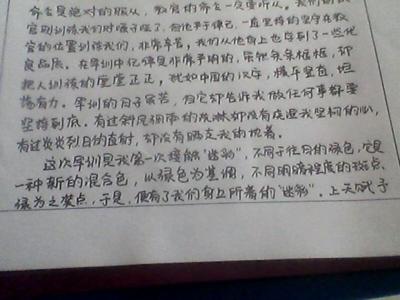 命令是绝对的服从，教官的命令一定要听从。我们的教
官训练我们时嗓子哑了，但他严于律己，一直坚持的坚守在教
官的位置训练我们，非常辛苦，我们从他身上也学到了一些优
良品质。在军训中纪律是非常严明的，条条框框，却
把人训练的堂堂正正，犹如中国的汉字，横平竖直，坦
荡有力。军训的日子虽苦，但它却告诉我做任何事都要
坚持到底。有过斜风细雨的没有我坚
有过炎炎烈日的直射，却没有晒支我的。
这次军训是我第一次接触“迷彩”，不同于往日的绿色，它是
一种新的混合色，以绿色为基调，不同明暗程度的斑点
缀为之装点，于是，便有了我们身上所着的“迷彩”。上天赋予